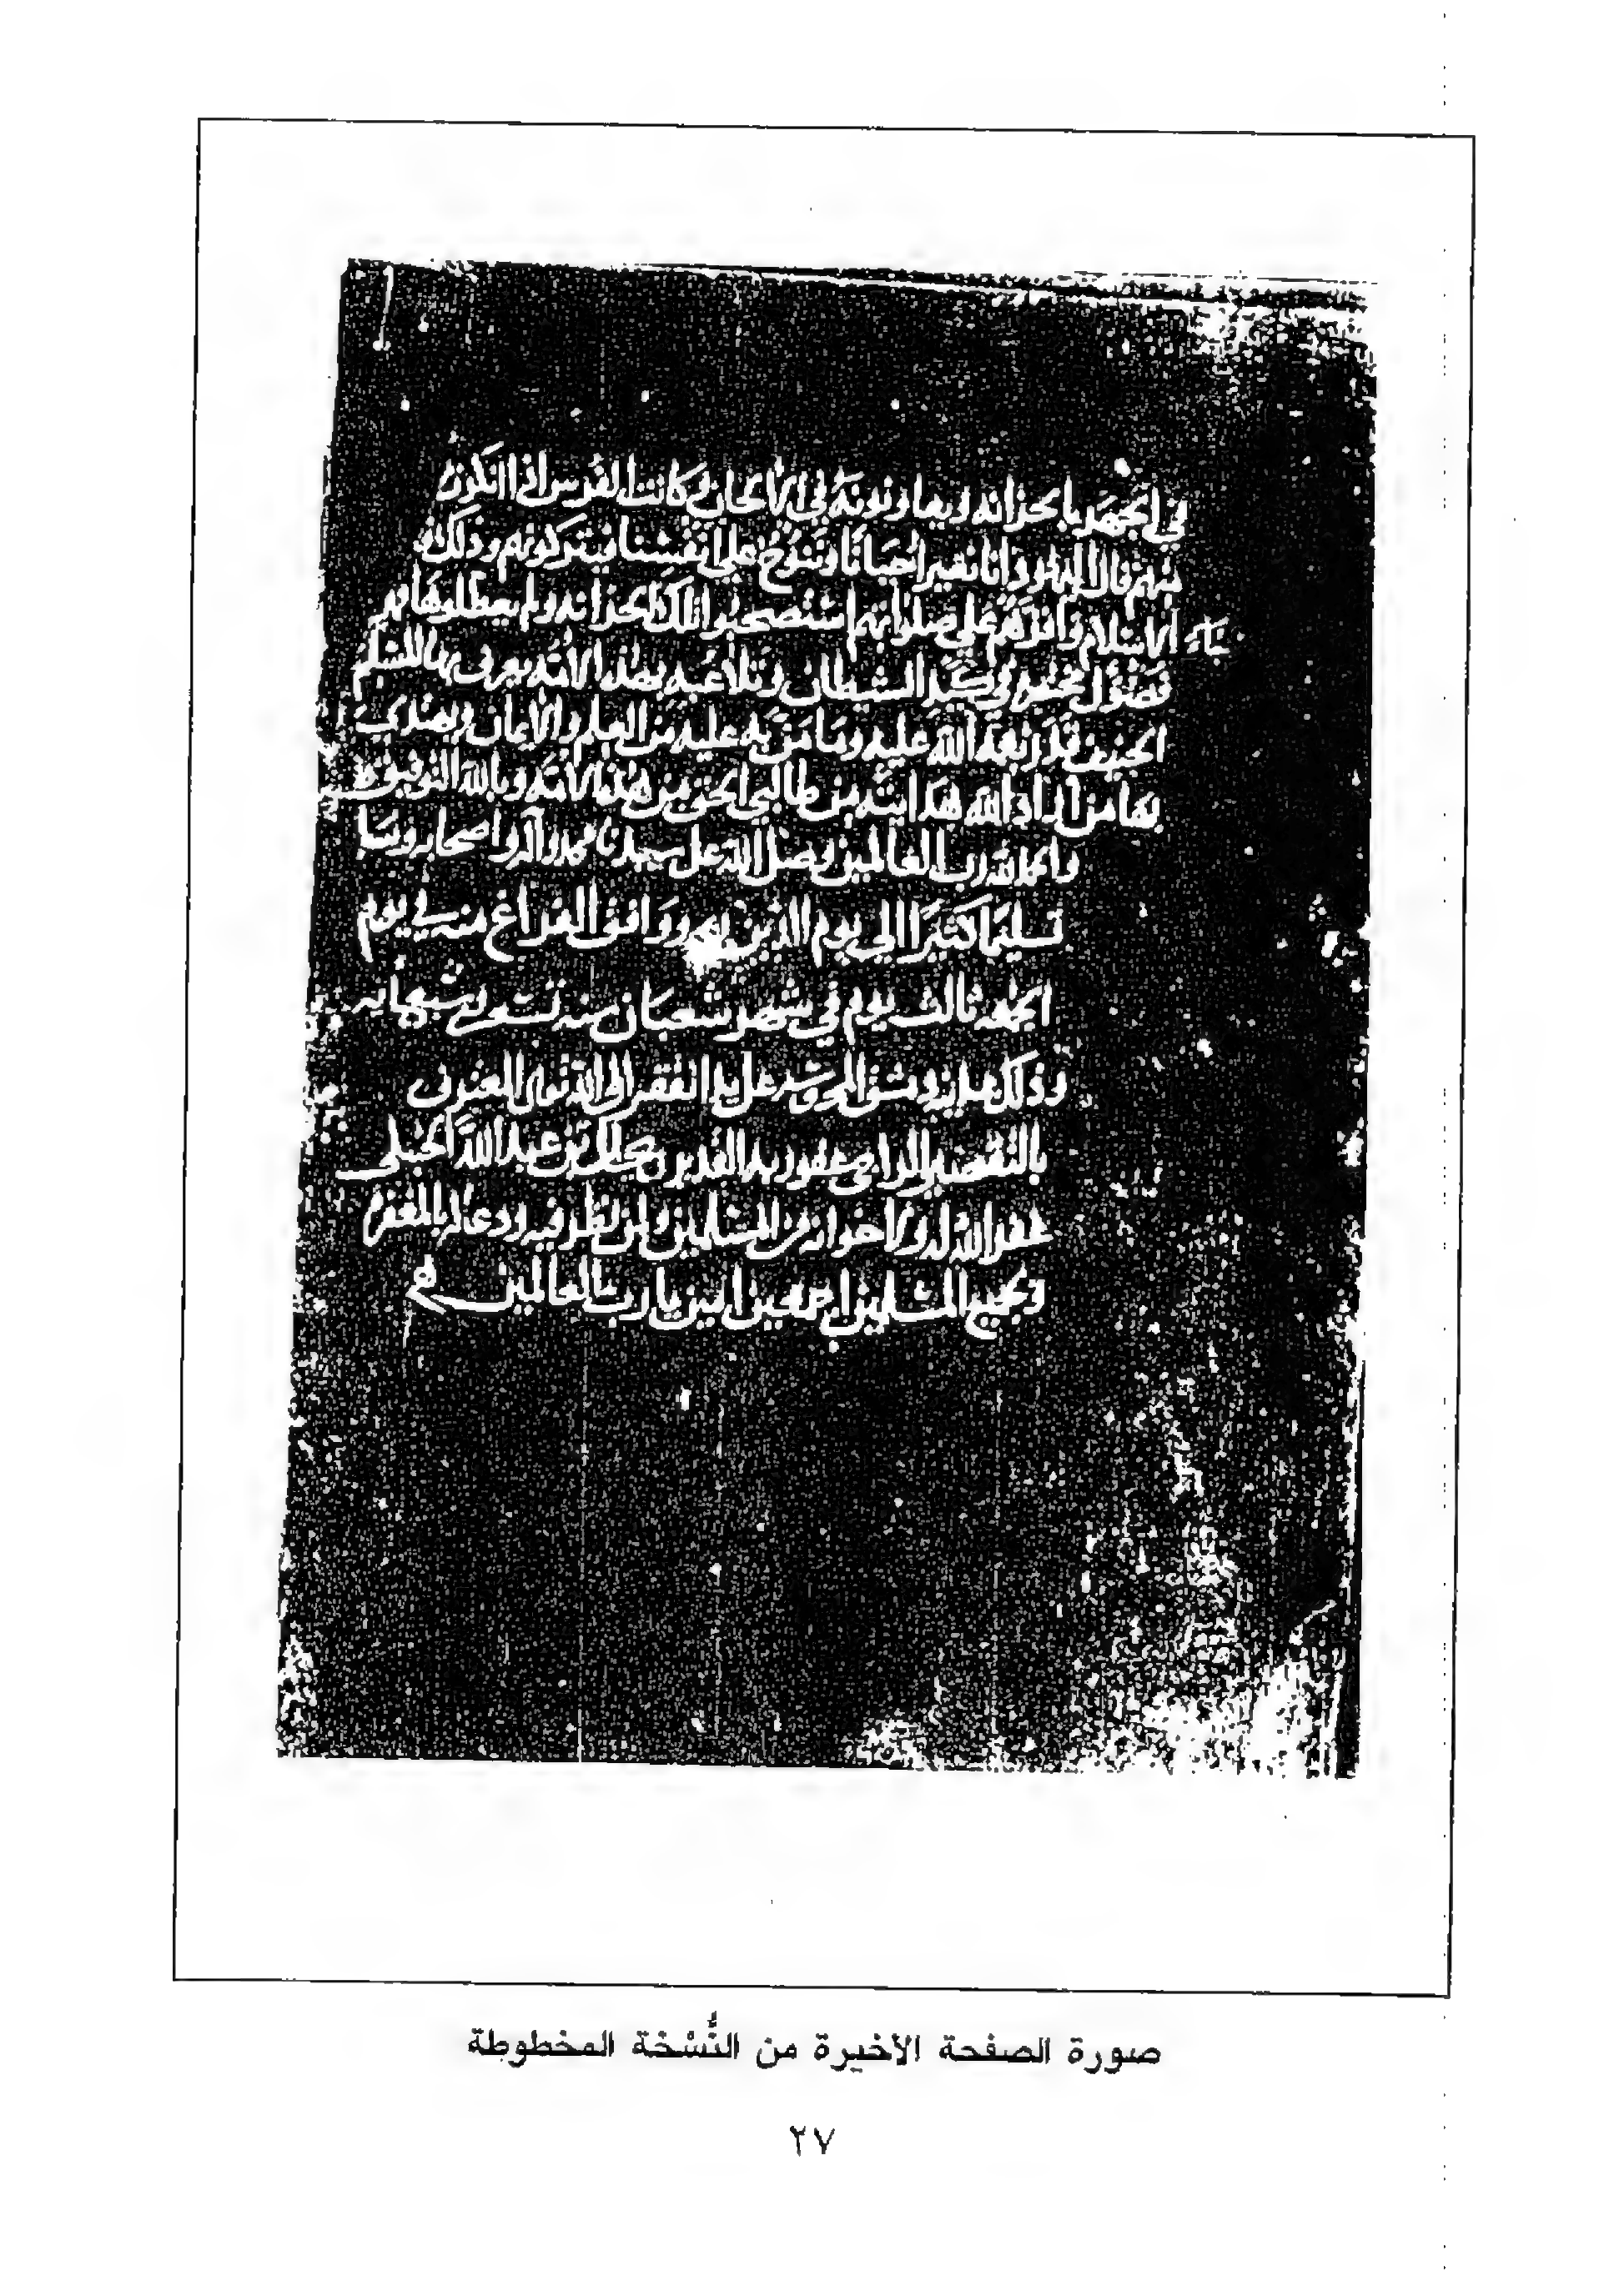 في الجهر بالحزانه ويعاونونه في الالحان وكانت الفرس اذا انكرت
منهم قال اليهود انا نغير احيانا وننوح على انفسنا فيتركونهم وذلك
الاسلام واقرهم على صلواتهم استصحبوا تلك الحزانه ولم يعطلوها
فصول مختصرة في كيد الشيطان وتلاعبه بهذه الامة يعرف بها المسلم
الحنيف قدر نعمة الله عليه وما من به عليه من العلم والايمان ويهتدي
بها من اراد الله هدايته من طالبي الحق من هذه الامة وبالله التوفيق
والحمد لله رب العالمين وصلى الله على سيدنا محمد وآله واصحابه وسلم
تسليما كثيرا الى يوم الدين ووافق الفراغ منه في يوم
الجمعه ثالث يوم في شهر شعبان سنه تسع
وذلك دمشق المحروسه على يد الفقير الى الله تعالى المعترف
بالتقصير الراجي عفو ربه القدير محمد بن عبد الله الحنبلي
غفر الله له ولاخوانه من المسلمين ولمن نظر فيه ودعا له بالمغفرة
ولجميع المسلمين اجمعين امين يا رب العالمين
صورة الصفحة الأخيرة من النُّسْخة المخطوطة
٢٧